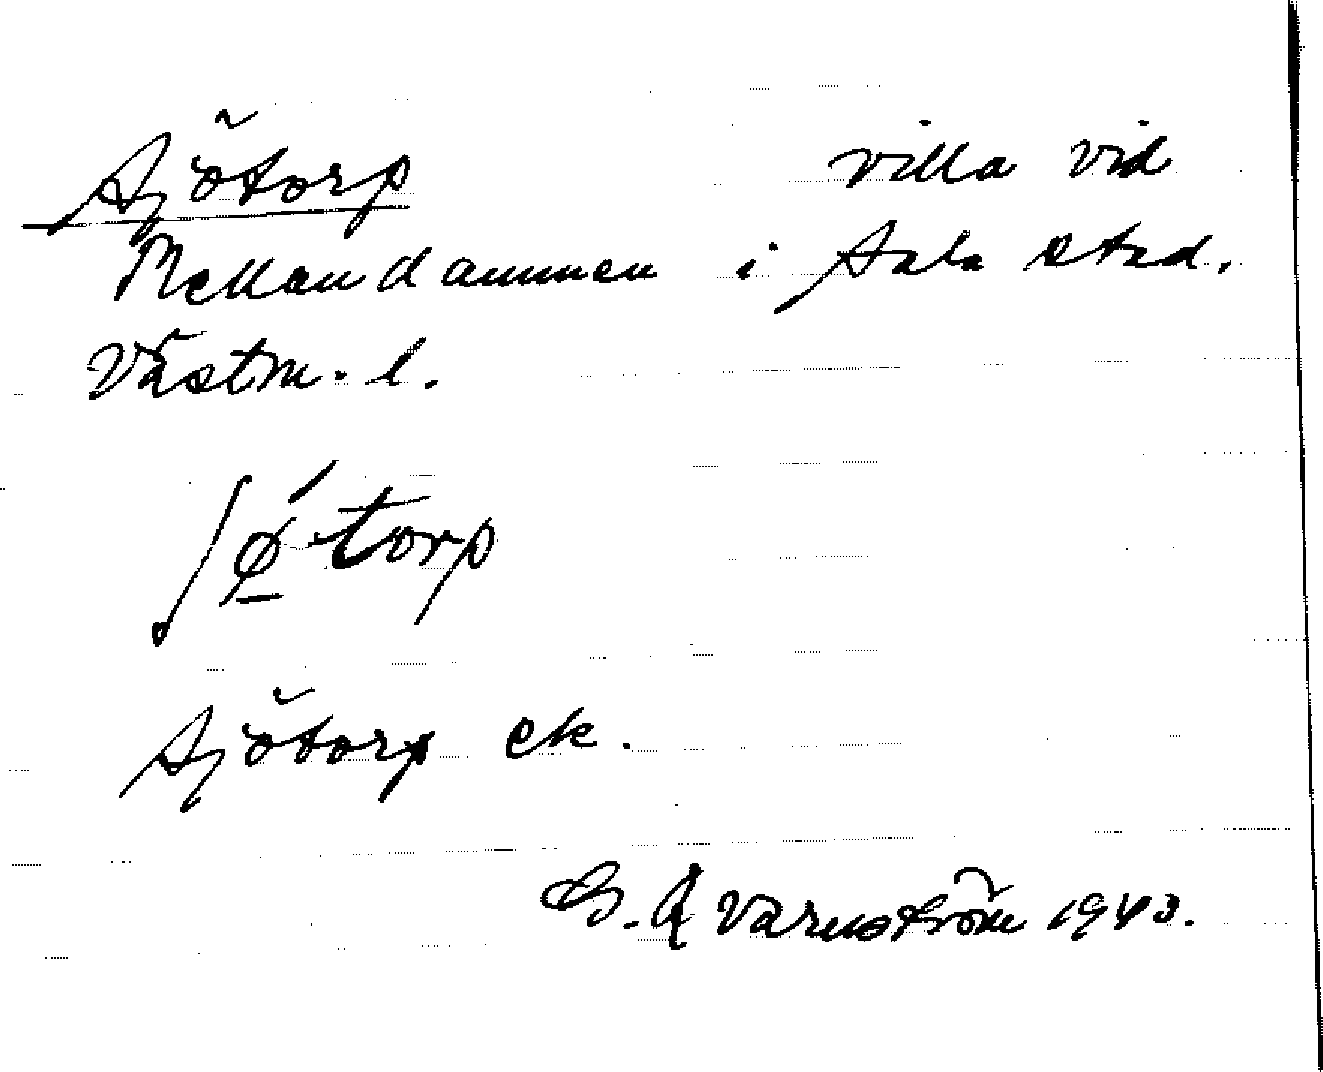 Sjötorp villa vid
Mellandammen i Sala stad.
Västm. l.
ʃǿ̲-torp
Sjötorp ek.
G. A Varnström 1943.